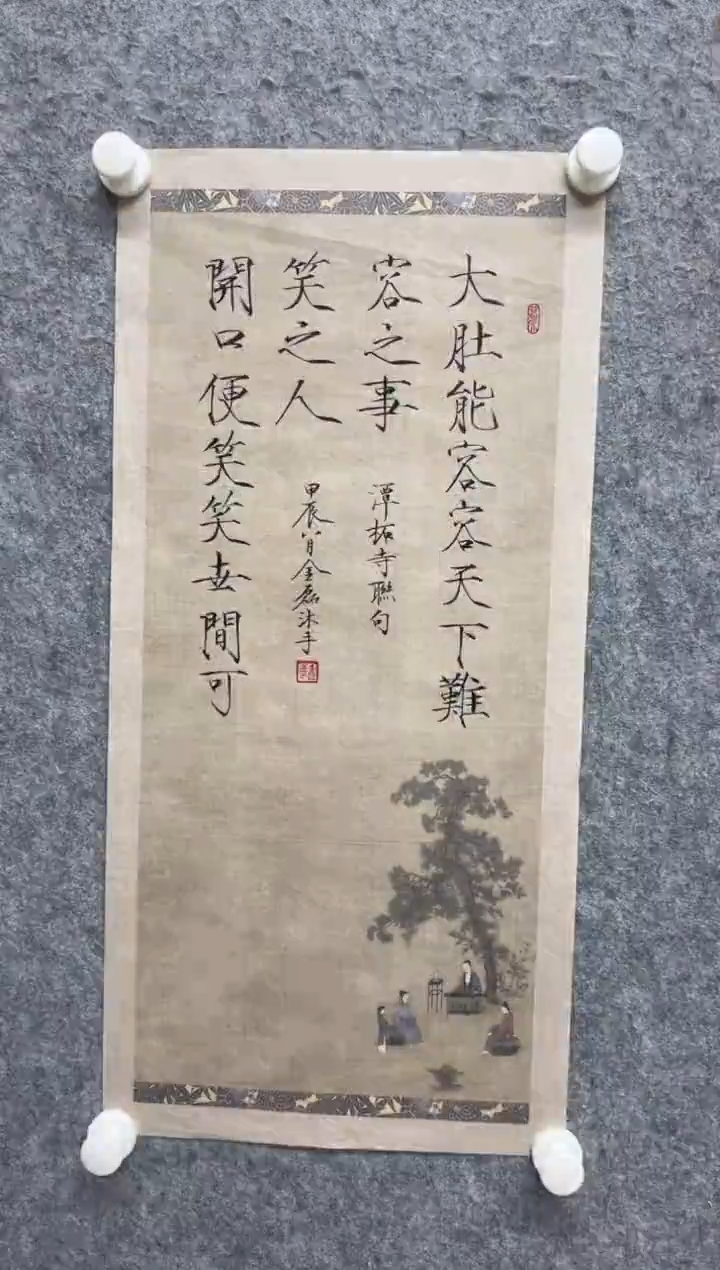 大肚能容容天下難
容之事
潭柘寺聯句
開口便笑笑世間可
笑之人
甲辰八月金磊沐手